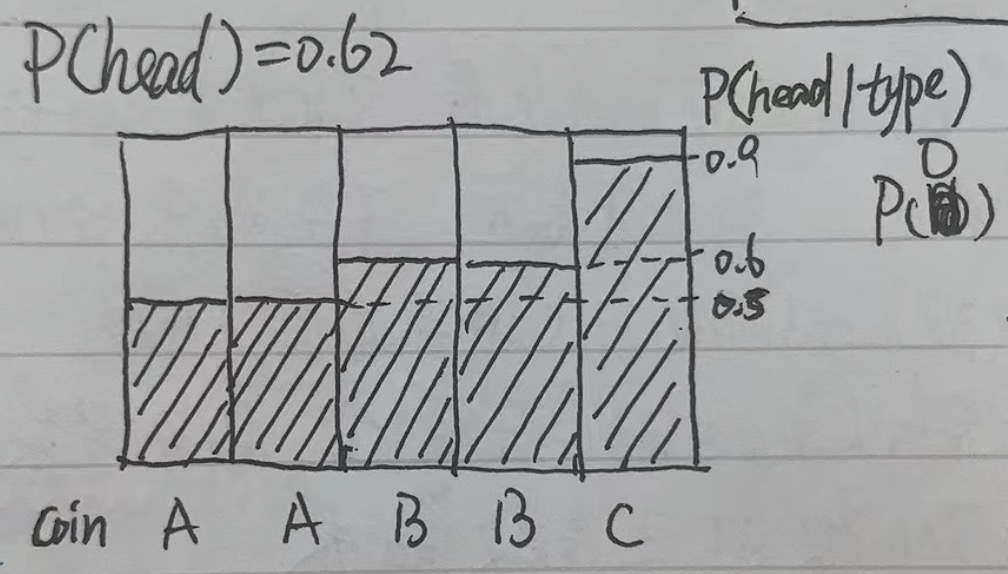 P(head)=0.62
P(head|type)
0.9
D
0.6
0.5
coin A A B B C